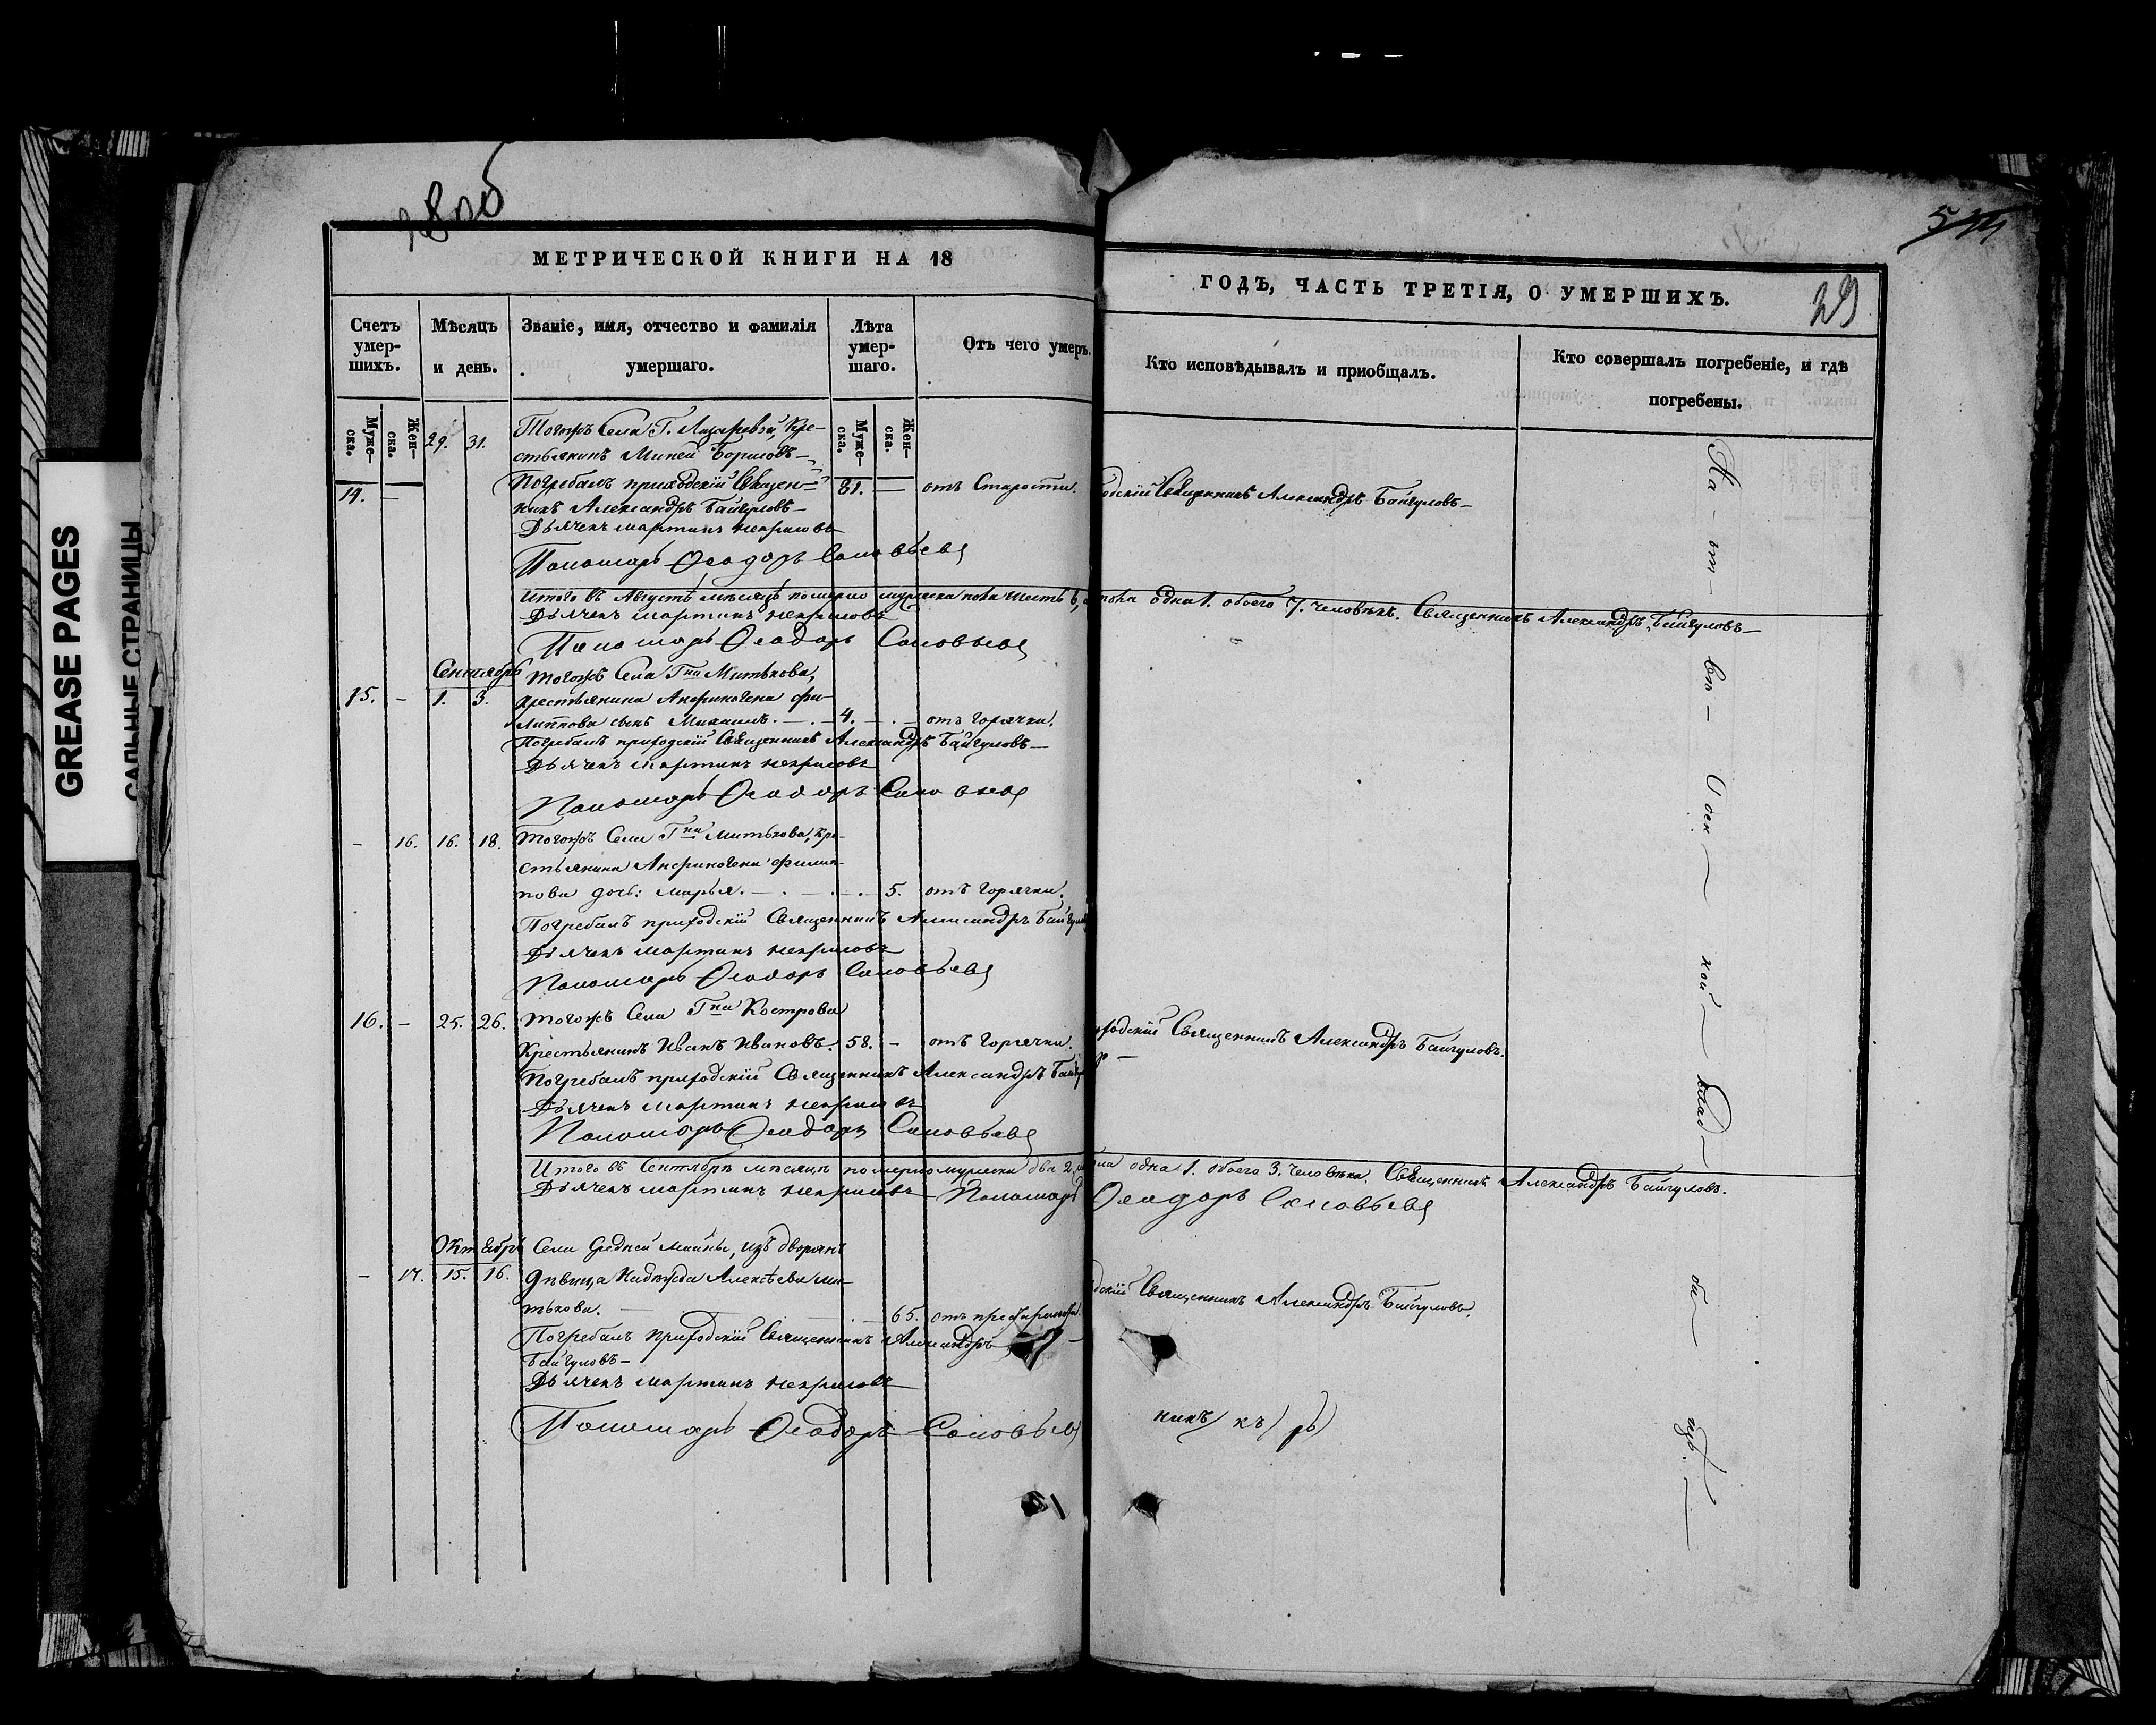 28 об
544
29
МЕТРИЧЕСКОЙ КНИГИ НА 18
ГОДЪ, ЧАСТЬ ТРЕТІЯ, О УМЕРШИХЪ.
Счетъ умер-шихъ.
Мѣсяцъ и день.
Званіе, имя, отчество и фамилія умершаго.
Лѣта умер-шаго.
Отъ чего умеръ.
Кто исповѣдывалъ и приобщалъ.
Кто совершалъ погребеніе, и гдѣ погребены.
Муже-ска.
Жен-ска.
Муже-ска.
Жен-ска.
29. 31. Тогожъ Села Г. Лазаревой, Кре-
стьянинъ Миней Борисовъ—
14. — Погребалъ приходскій Священ- 81. — отъ Старости. одскій Священникъ Александръ Байгуловъ—
никъ Александръ Байгуловъ—
Дьячекъ Мартинъ Некрасовъ
Пономарь Ѳеодоръ Соловьевъ
Итого въ Августѣ мѣсяцѣ померло мужеска пола шесть 6, пола одна 1. обоего 7. человѣкъ. Священникъ Александръ Байгуловъ—
Дьячекъ Мартинъ Некрасовъ
Пономарь Ѳеодоръ Соловьевъ
Сентябрь Тогожъ Села Гна Митькова,
15. — 1. 3. крестьянина Анфиногена Фи-
липпова сынъ Михаилъ. — 4. — отъ горячки.
Погребалъ приходскій Священникъ Александръ Байгуловъ—
Дьячекъ Мартинъ Некрасовъ
Пономарь Ѳеодоръ Соловьевъ
— 16. 16. 18. Тогожъ Села Гна Митькова, кре-
стьянина Анфиногена Филип-
пова дочь: Марья. — 5. отъ горячки.
Погребалъ приходскій Священникъ Александръ Байгул
Дьячекъ Мартинъ Некрасовъ
Пономарь Ѳеодоръ Соловьевъ
16. — 25. 26. Тогожъ Села Гна Кострова
Крестьянинъ Иванъ Ивановъ. 58. — отъ горячки. ходскій Священникъ Александръ Байгуловъ.
Погребалъ приходскій Священникъ Александръ Байгу
Дьячекъ Мартинъ Некрасовъ
Пономарь Ѳеодоръ Соловьевъ
Итого въ Сентябрѣ мѣсяцѣ померло мужеска два 2. одна 1. обоего 3. человѣка. Священникъ Александръ Байгуловъ.
Дьячекъ Мартинъ Некрасовъ Пономарь Ѳеодоръ Соловьевъ
Октябрь Села Средней Майны, изъ дворянъ
— 17. 15. 16. дѣвица Надежда Алексѣева Ми-
тькова. — 65. отъ дскій Священникъ Александръ Байгуловъ.
Погребалъ Приходскій Священникъ Александръ
Байгуловъ—
Дьячекъ Мартинъ Некрасовъ
Пономарь Ѳеодоръ Соловьев
никъ) къ) рь)
На
кой
клад
GREASE PAGES
САЛЬНЫЕ СТРАНИЦЫ